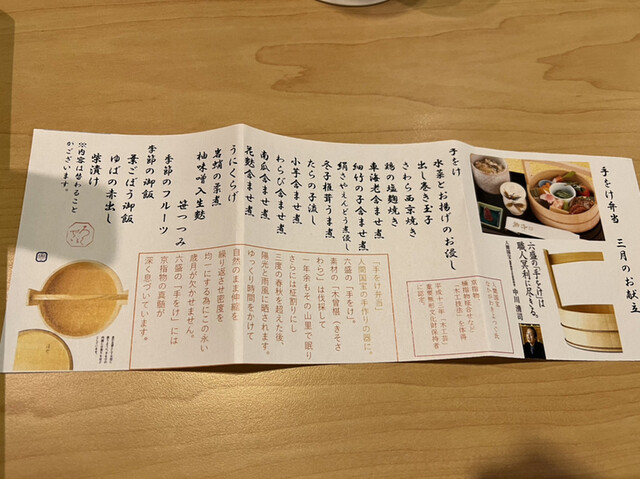 手をけ弁当 三月のお献立
六盛の「手をけ」は
職人冥利に尽きる。
中川清司
手をけ
水菜とお揚げのお浸し
出し巻き玉子
さわら西京焼き
鶏の塩麹焼き
車海老含ませ煮
細竹の子含ませ煮
絹さやえんどう煮浸し
冬子椎茸うま煮
たらの子流し
小芋含ませ煮
わらび含ませ煮
南瓜含ませ煮
花麩含ませ煮
うにくらげ
岩蛸の柔煮
柚味噌入生麩
笹つつみ
季節のフルーツ
季節の御飯
葉ごぼう御飯
ゆばの赤出し
柴漬け
※内容は替わること
がございます。
京指物、
「木工技法」を体得
平成十三年「木工芸」
重要無形文化財保持者
に認定
「手をけ弁当」
人間国宝の手作りの器に。
六盛の「手をけ」。
素材の「木曽椹」（きそさ
わら）は伐採して
一年余もその山里で眠り
さらには柾割りにし
三度の春秋を超えた後、
陽光と雨風に晒されます。
ゆっくり時間をかけて
自然のまま伸縮を
繰り返させ密度を
均一にする為にこの永い
歳月が欠かせません。
六盛の「手をけ」には
京指物の真髄が
深く息づいています。